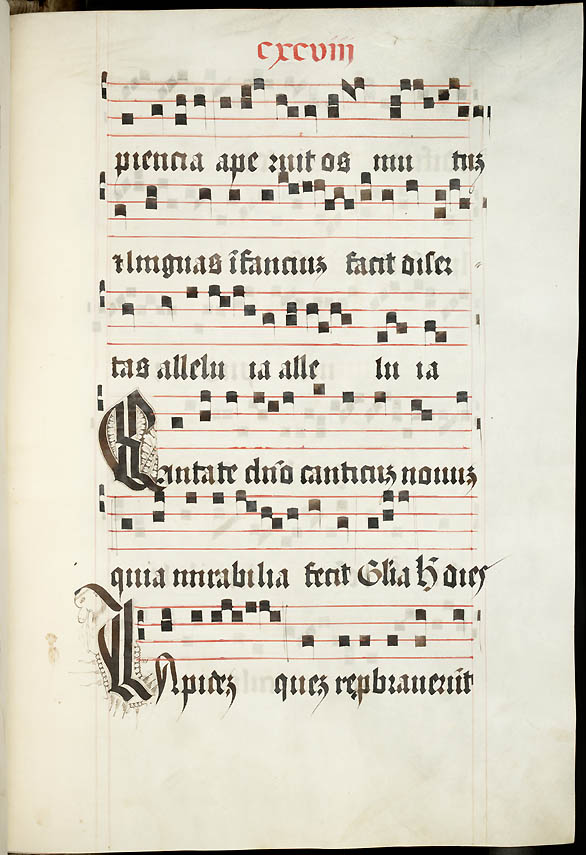 cxcviii
piencia ape ruit os mu tuȝ
⁊ linguas īfanciuȝ facit diser
tas allelu ia alle lu ia
Cantate dn̄o canticuȝ nouuȝ
quia mirabilia fecit Gl̄ia H̄ dies
Lapideȝ queȝ reprobauerūt